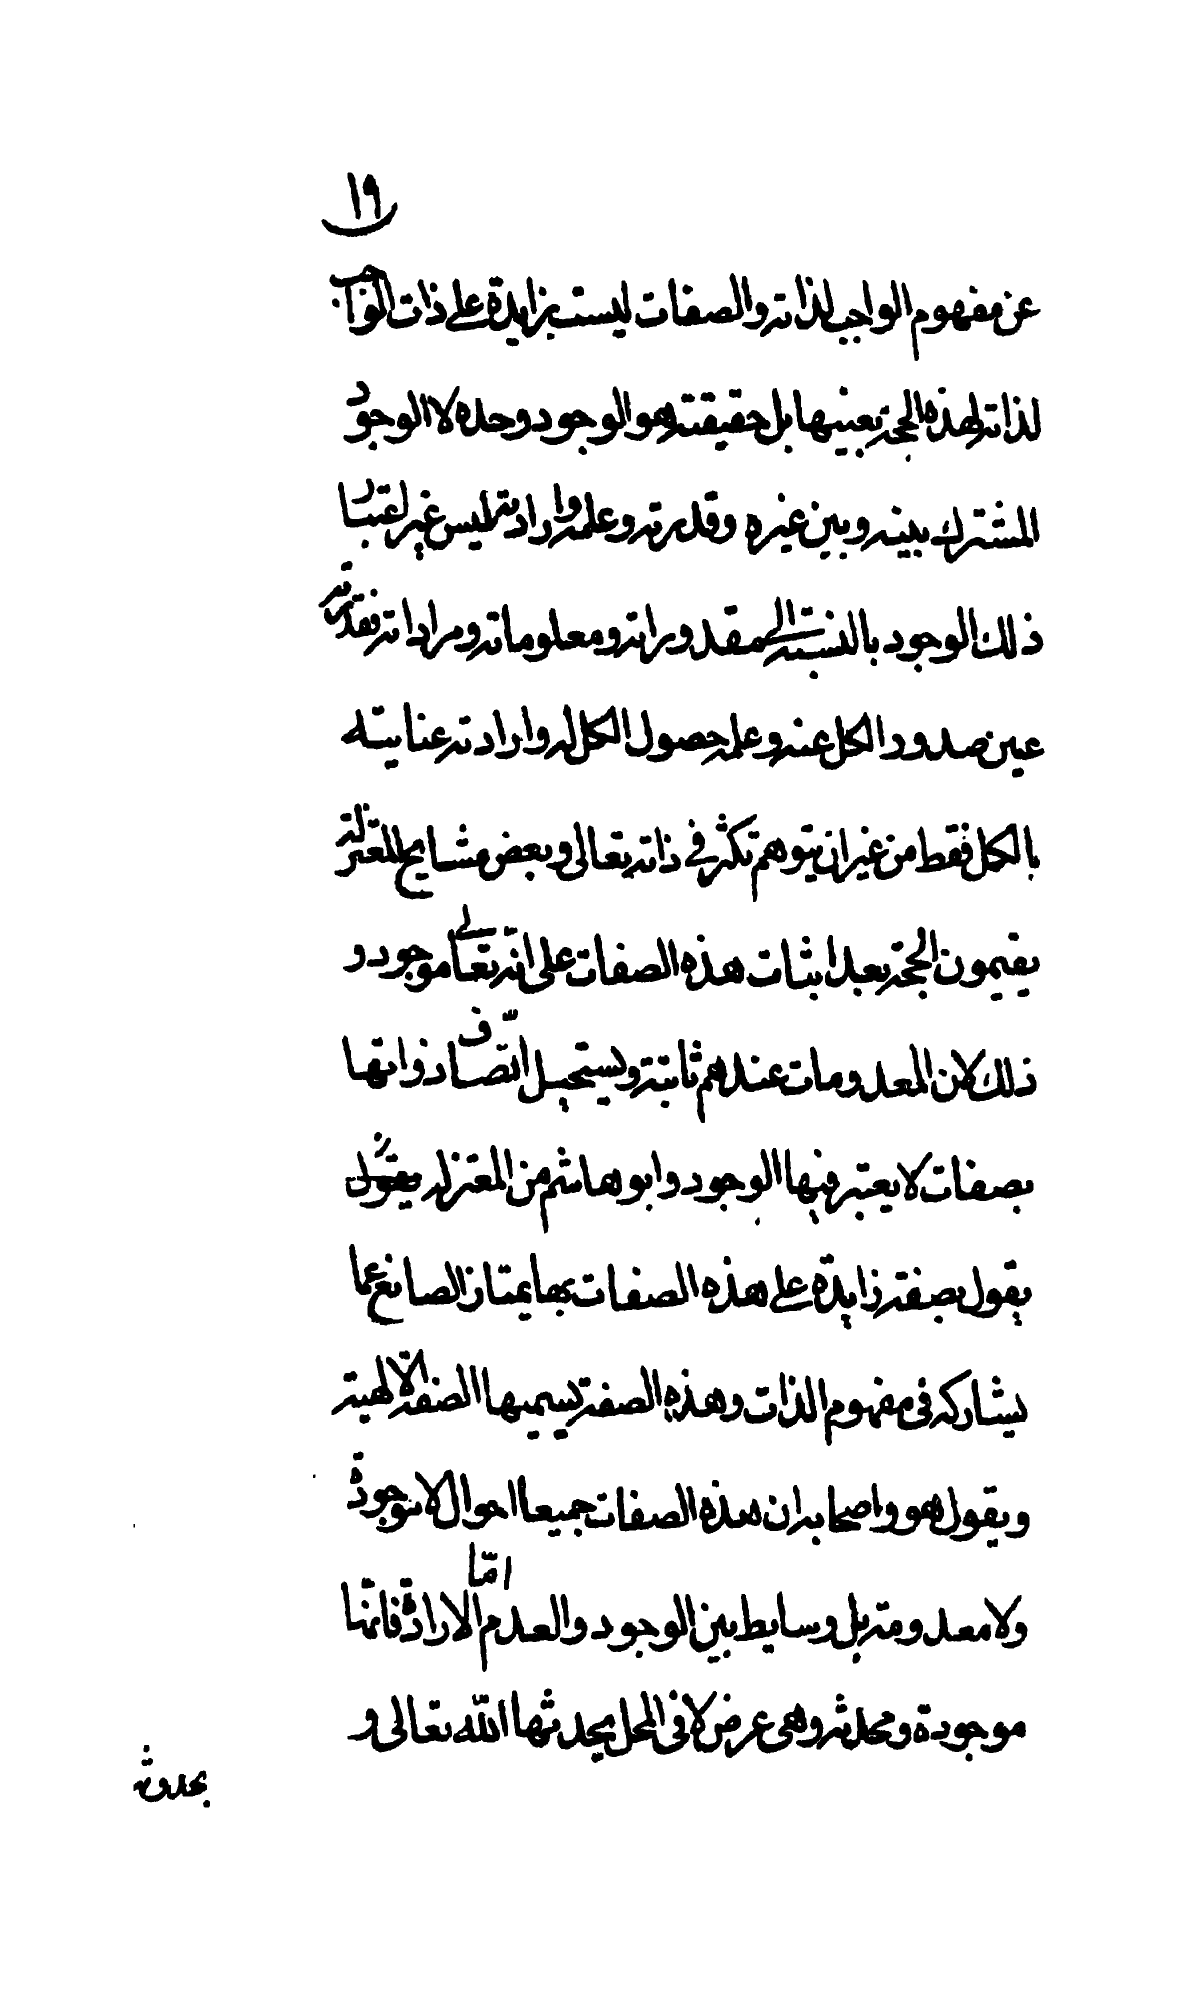 ١٩
عن مفهوم الواجب لذاته والصفات ليست بزايدة على ذات الواجب
لذاته لهذه الحجة بعينها بل حقيقته هو الوجود وحده لا الوجود
المشترك بينه وبين غيره وقدرته وعلمه وارادته ليس غير اعتبار
ذلك الوجود بالنسبة الى مقدوراته ومعلوماته ومراداته فقدرته
عين صدور الكل عنه وعلمه حصول الكل له وارادته عنايته
بالكل فقط من غير ان يتوهم تكثر في ذاته تعالى وبعض مشايخ المعتزلة
يقيمون الحجة بعد اثبات هذه الصفات على انه تعالى موجود و
ذلك لان المعدومات عندهم ثابتة ويستحيل اتصاف ذواتها
بصفات لا يعتبر فيها الوجود وابو هاشم من المعتزله يقول
يقول بصفة زايدة على هذه الصفات بها يمتاز الصانع عما
يشاركه في مفهوم الذات وهذه الصفة يسميها الصفة الالهية
ويقول هو واصحابه ان هذه الصفات جميعا احوال لا موجودة
ولا معدومة بل وسايط بين الوجود والعدم امّا الارادة فانّها
موجودة ومحدثه وهي عرض لا في المحل يحدثها الله تعالى و
بحدوثه